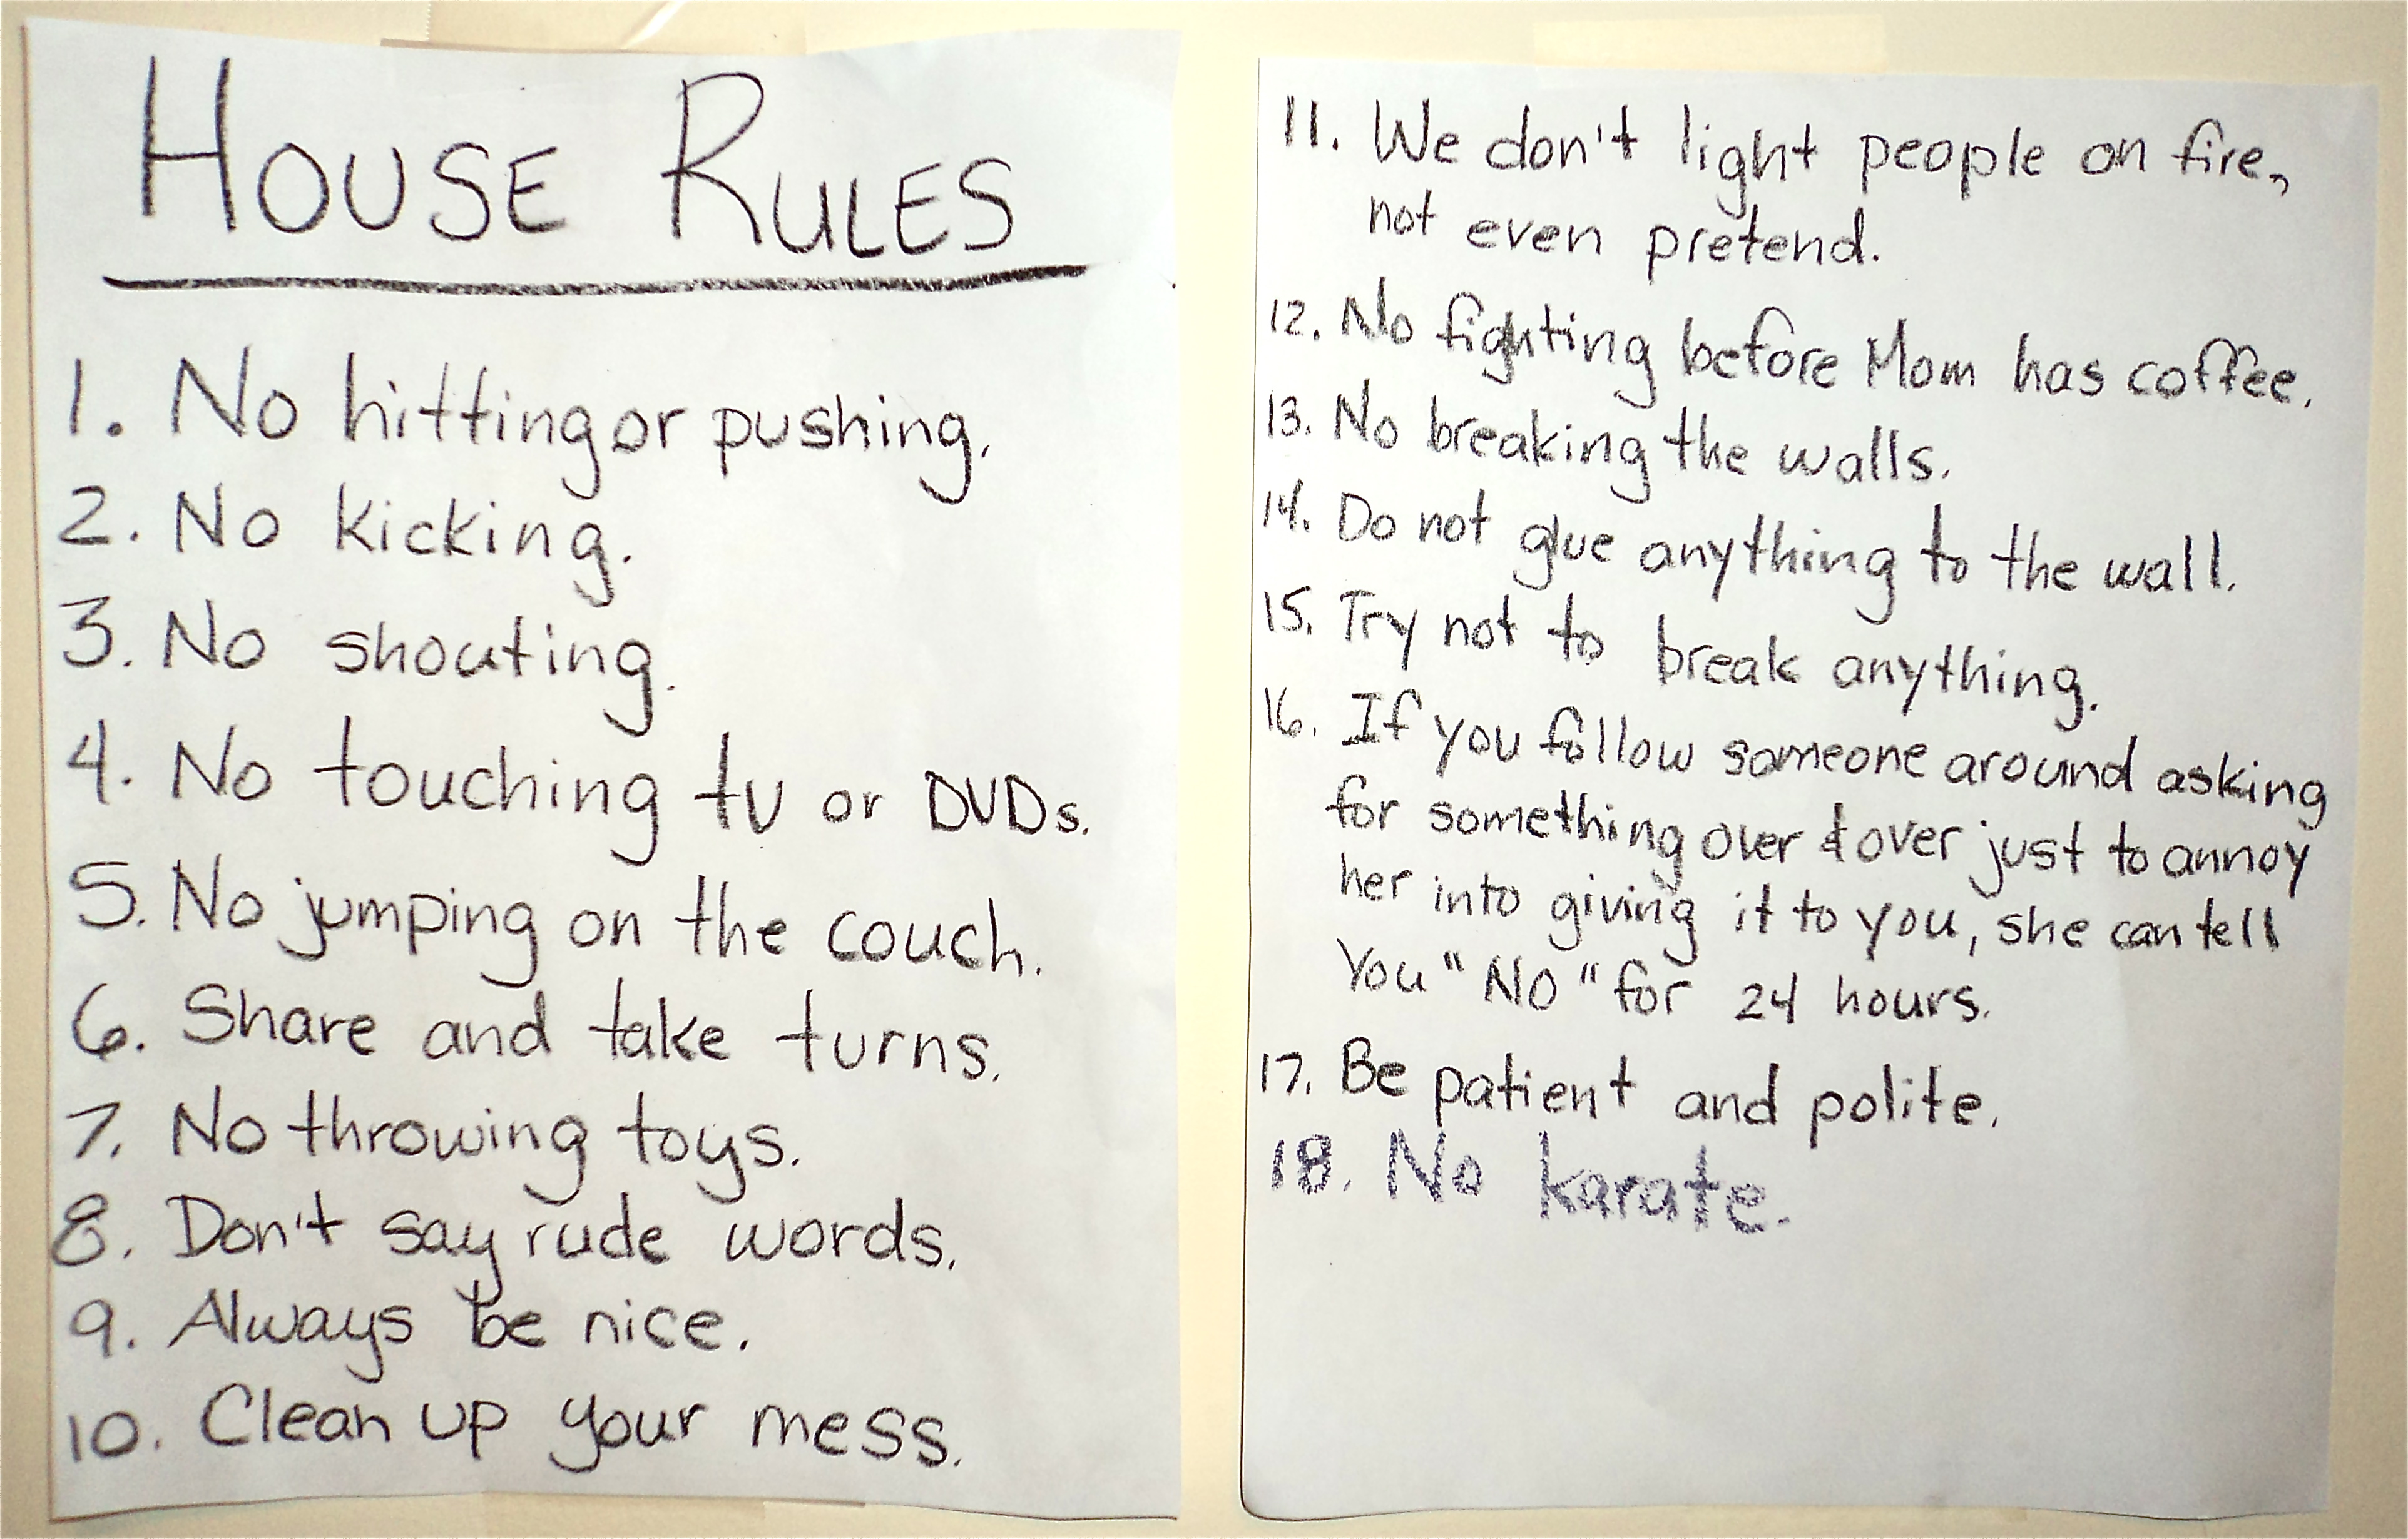 HOUSE RULES
1. No hitting or pushing.
2. No kicking.
3. No shouting.
4. No touching tv or DVDs.
5. No jumping on the couch.
6. Share and take turns.
7. No throwing toys.
8. Don't say rude words.
9. Always be nice.
10. Clean up your mess.
11. We don't light people on fire,
not even pretend.
12. No fighting before Mom has coffee.
13. No breaking the walls.
14. Do not glue anything to the wall.
15. Try not to break anything.
16. If you follow someone around asking
for something over & over just to annoy
her into giving it to you, she can tell
You "NO" for 24 hours.
17. Be patient and polite.
18. No karate.